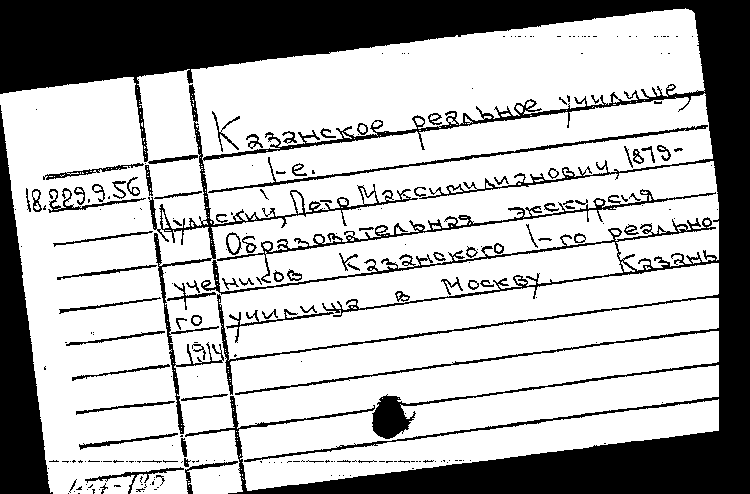 Казанское реальное училище,
1-е.
18.229.9.56
Дульский, Петр Максимилианович, 1879-
Образовательная экскурсия
учеников Казанского 1-го реально-
го училища в Москву. Казань
1914.
437-780